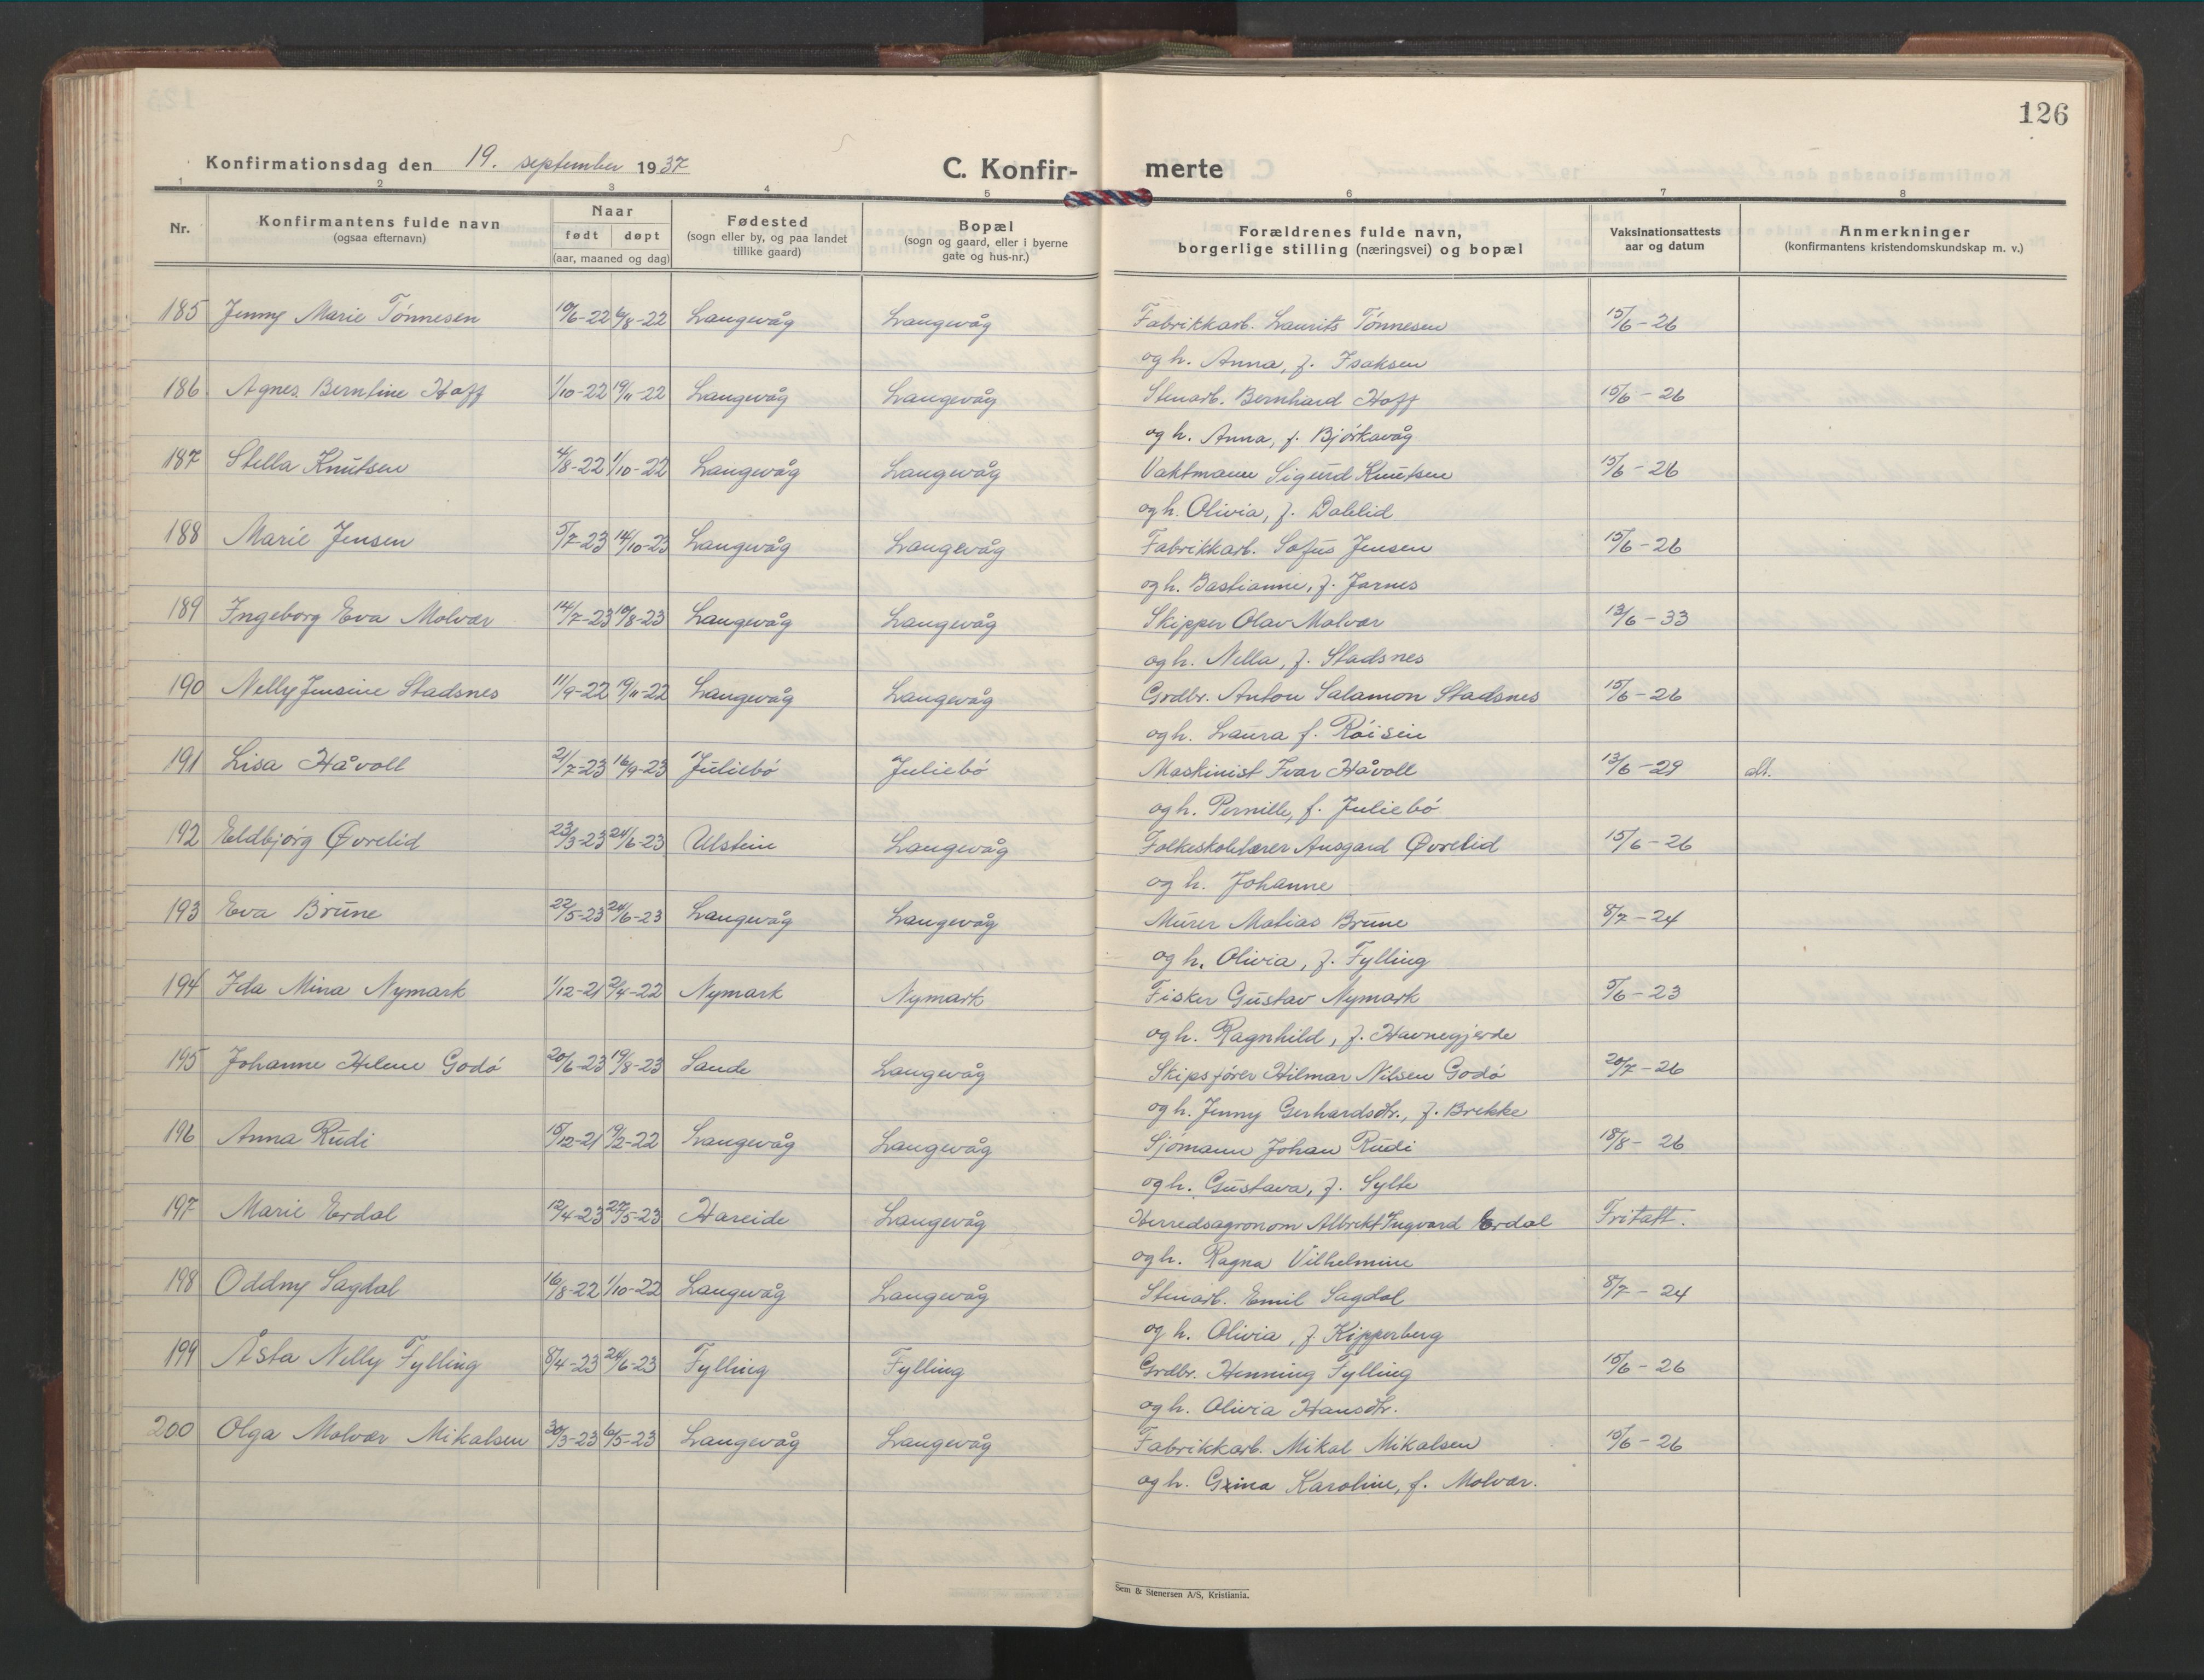 126
Konfirmationsdag den 19. september 1937 C. Konfir- merte
1 2 3 4 5 6 7 8
Nr. Konfirmantens fulde navn (ogsaa efternavn) Naar født døpt (aar, maaned og dag) Fødested (sogn eller by, og paa landet tillike gaard) Bopæl (sogn og gaard, eller i byerne gate og hus-nr.) Forældrenes fulde navn, borgerlige stilling (næringsvei) og bopæl Vaksinationsattests aar og datum Anmerkninger (konfirmantens kristendomskundskap m. v.)
185 Jenny Marie Tønnesen 10/6-22 6/8-22 Langevåg Langevåg Fabrikkarb. Laurits Tønnesen 15/6-26
og h. Anna, f. Isaksen
186 Agnes Berntine Hoff 1/10-22 19/11-22 Langevåg Langevåg Stenarb. Bernhard Hoff 15/6-26
og h. Anna, f. Bjørkavåg
187 Stella Knutsen 4/8-22 1/10-22 Langevåg Langevåg Vaktmann Sigurd Knutsen 15/6-26
og h. Olivia, f. Dalelid
188 Marie Jensen 5/7-23 14/10-23 Langevåg Langevåg Fabrikkarb. Sofus Jensen 15/6-26
og h. Bastianne, f. Jarnes
189 Ingeborg Eva Molvær 14/7-23 19/8-23 Langevåg Langevåg Skipper Olav Molvær 13/6-33
og h. Nella, f. Stadsnes
190 Nelly Jensine Stadsnes 11/9-22 19/11-22 Langevåg Langevåg Grdbr. Anton Salamon Stadsnes 15/6-26
og h. Laura f. Røisen
191 Lisa Håvoll 21/7-23 16/9-23 Juliebø Juliebø Maskinist Ivar Håvoll 13/6-29 alt.
og h. Pernille, f. Juliebø
192 Eldbjørg Øvrelid 23/3-23 24/6-23 Ulstein Langevåg Folkeskolelærer Ansgard Øvrelid 15/6-26
og h. Johanne
193 Eva Brune 22/5-23 24/6-23 Langevåg Langevåg Murer Matias Brune 8/7-24
og h. Olivia, f. Fylling
194 Ida Mina Nymark 1/12-21 2/4-22 Nymark Nymark Fisker Gustav Nymark 5/6-23
og h. Ragnhild, f. Havnegjerde
195 Johanne Helene Godø 20/6-23 19/8-23 Sande Langevåg Skipsfører Hilmar Nilsen Godø 20/7-26
og h. Jenny Gerhardsdtr., f. Brekke
196 Anna Rudi 15/12-21 19/2-22 Langevåg Langevåg Sjømann Johan Rudi 18/8-26
og h. Gustava, f. Sylte
197 Marie Erdal 12/4-23 27/5-23 Hareide Langevåg Herredsagronom Albrekt Ingvard Erdal Fritatt.
og h. Ragna Vilhelmine
198 Oddny Sagdal 16/8-22 1/10-22 Langevåg Langevåg Stenarb. Emil Sagdal 8/7-24
og h. Olivia, f. Kipperberg
199 Åsta Nelly Fylling 8/4-23 24/6-23 Fylling Fylling Grdbr. Henning Fylling 15/6-26
og h. Olivia Hansdtr.
200 Olga Molvær Mikalsen 30/3-23 6/5-23 Langevåg Langevåg Fabrikkarb. Mikal Mikalsen 15/6-26
og h. Karoline, f. Molvær.
Sem & Stenersen A/S, Kristiania.